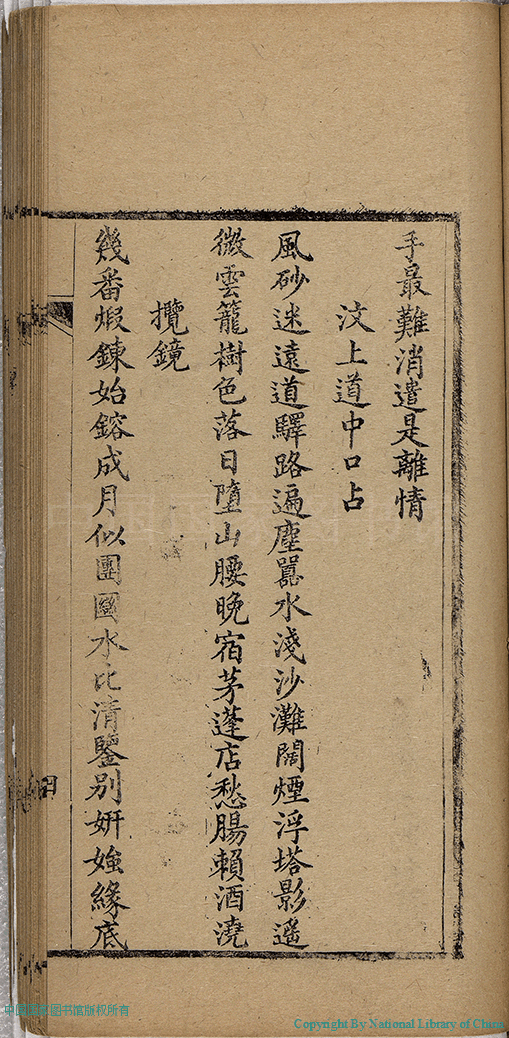 手最難消遣是離情
汶上道中口占
風砂迷遠道驛路遍塵囂水淺沙灘闊煙浮塔影遙
微雲籠樹色落日墮山腰晚宿茅蓬店愁腸賴酒澆
攬鏡
幾番煆鍊始鎔成月似團圞水比清鑒別妍媸緣底
Copyright By National Library of China